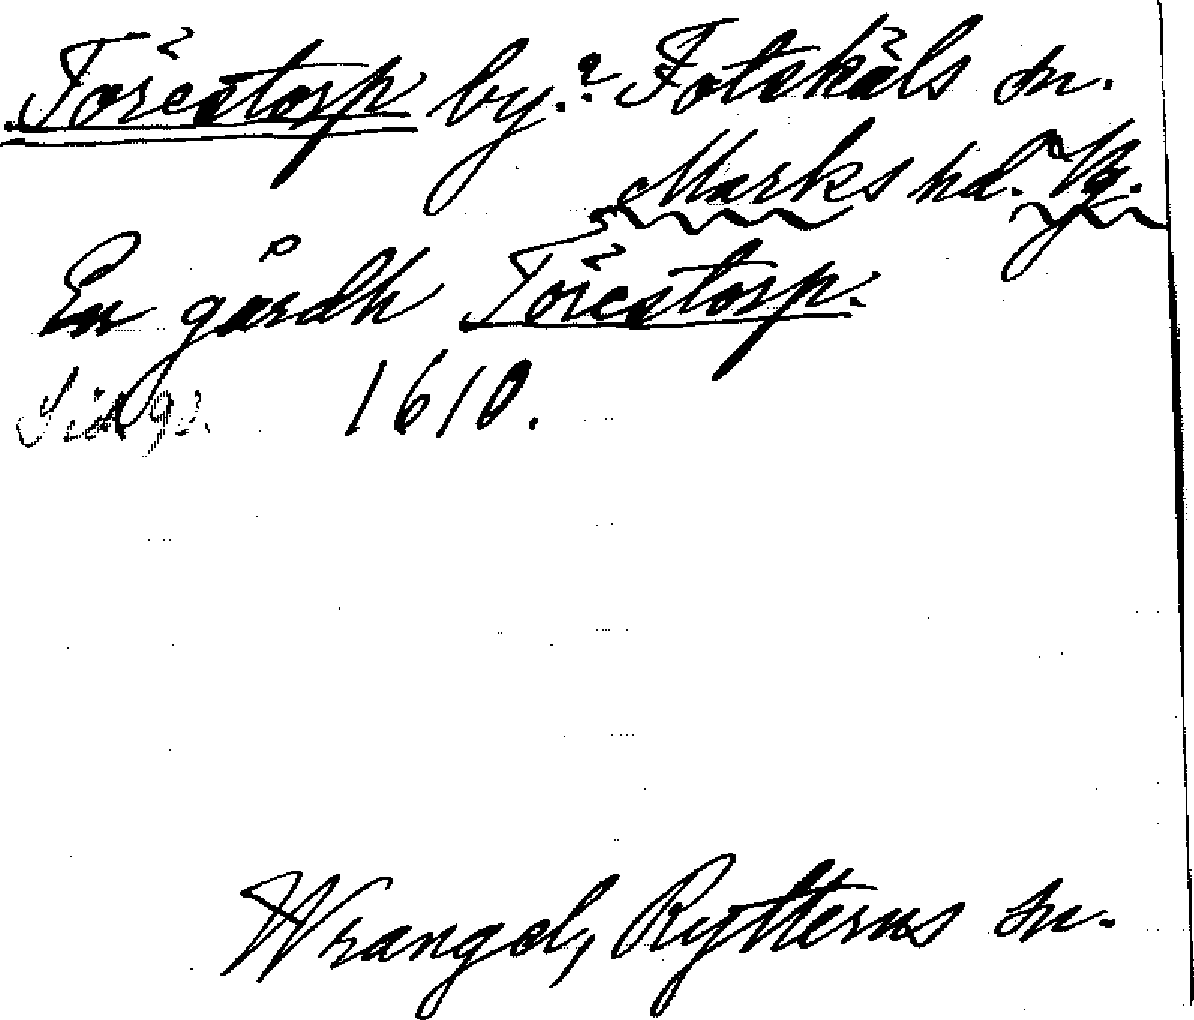 Törestorp by.? Fotskäls sn.
Marks hd. Vg.
En gårdh Törestorp.
Sid 92. 1610.
Wrangel, Rytterns sn.